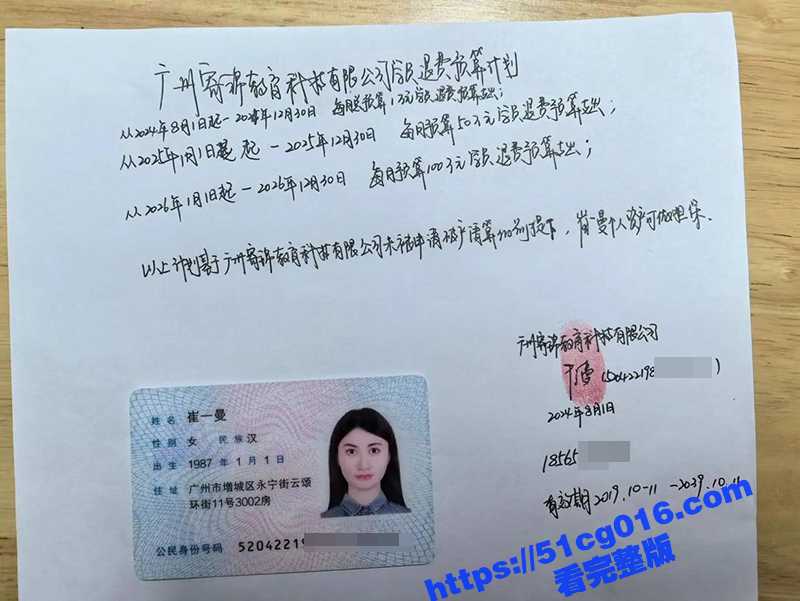 广州寄锦教育科技有限公司学员退费预算计划
从2024年8月1日起-2024年12月30日 每月总预算1万元学员退费预算支出;
从2025年1月1日起-2025年12月30日 每月预算50万元学员退费预算支出;
从2026年1月1日起-2026年12月30日 每月预算100万元学员退费预算支出;
以上计划基于广州寄锦教育科技有限公司未被申请破产清算的前提下,崔一曼个人资产可做担保.
广州寄锦教育科技有限公司
2024年8月1日
18565
有效期2019.10-11-2039.10.11
姓名 崔一曼
性别 女 民族 汉
出生 1987年1月1日
住址 广州市增城区永宁街云颂
环街11号3002房
公民身份号码 5204221
https://51cg016.com
看完整版